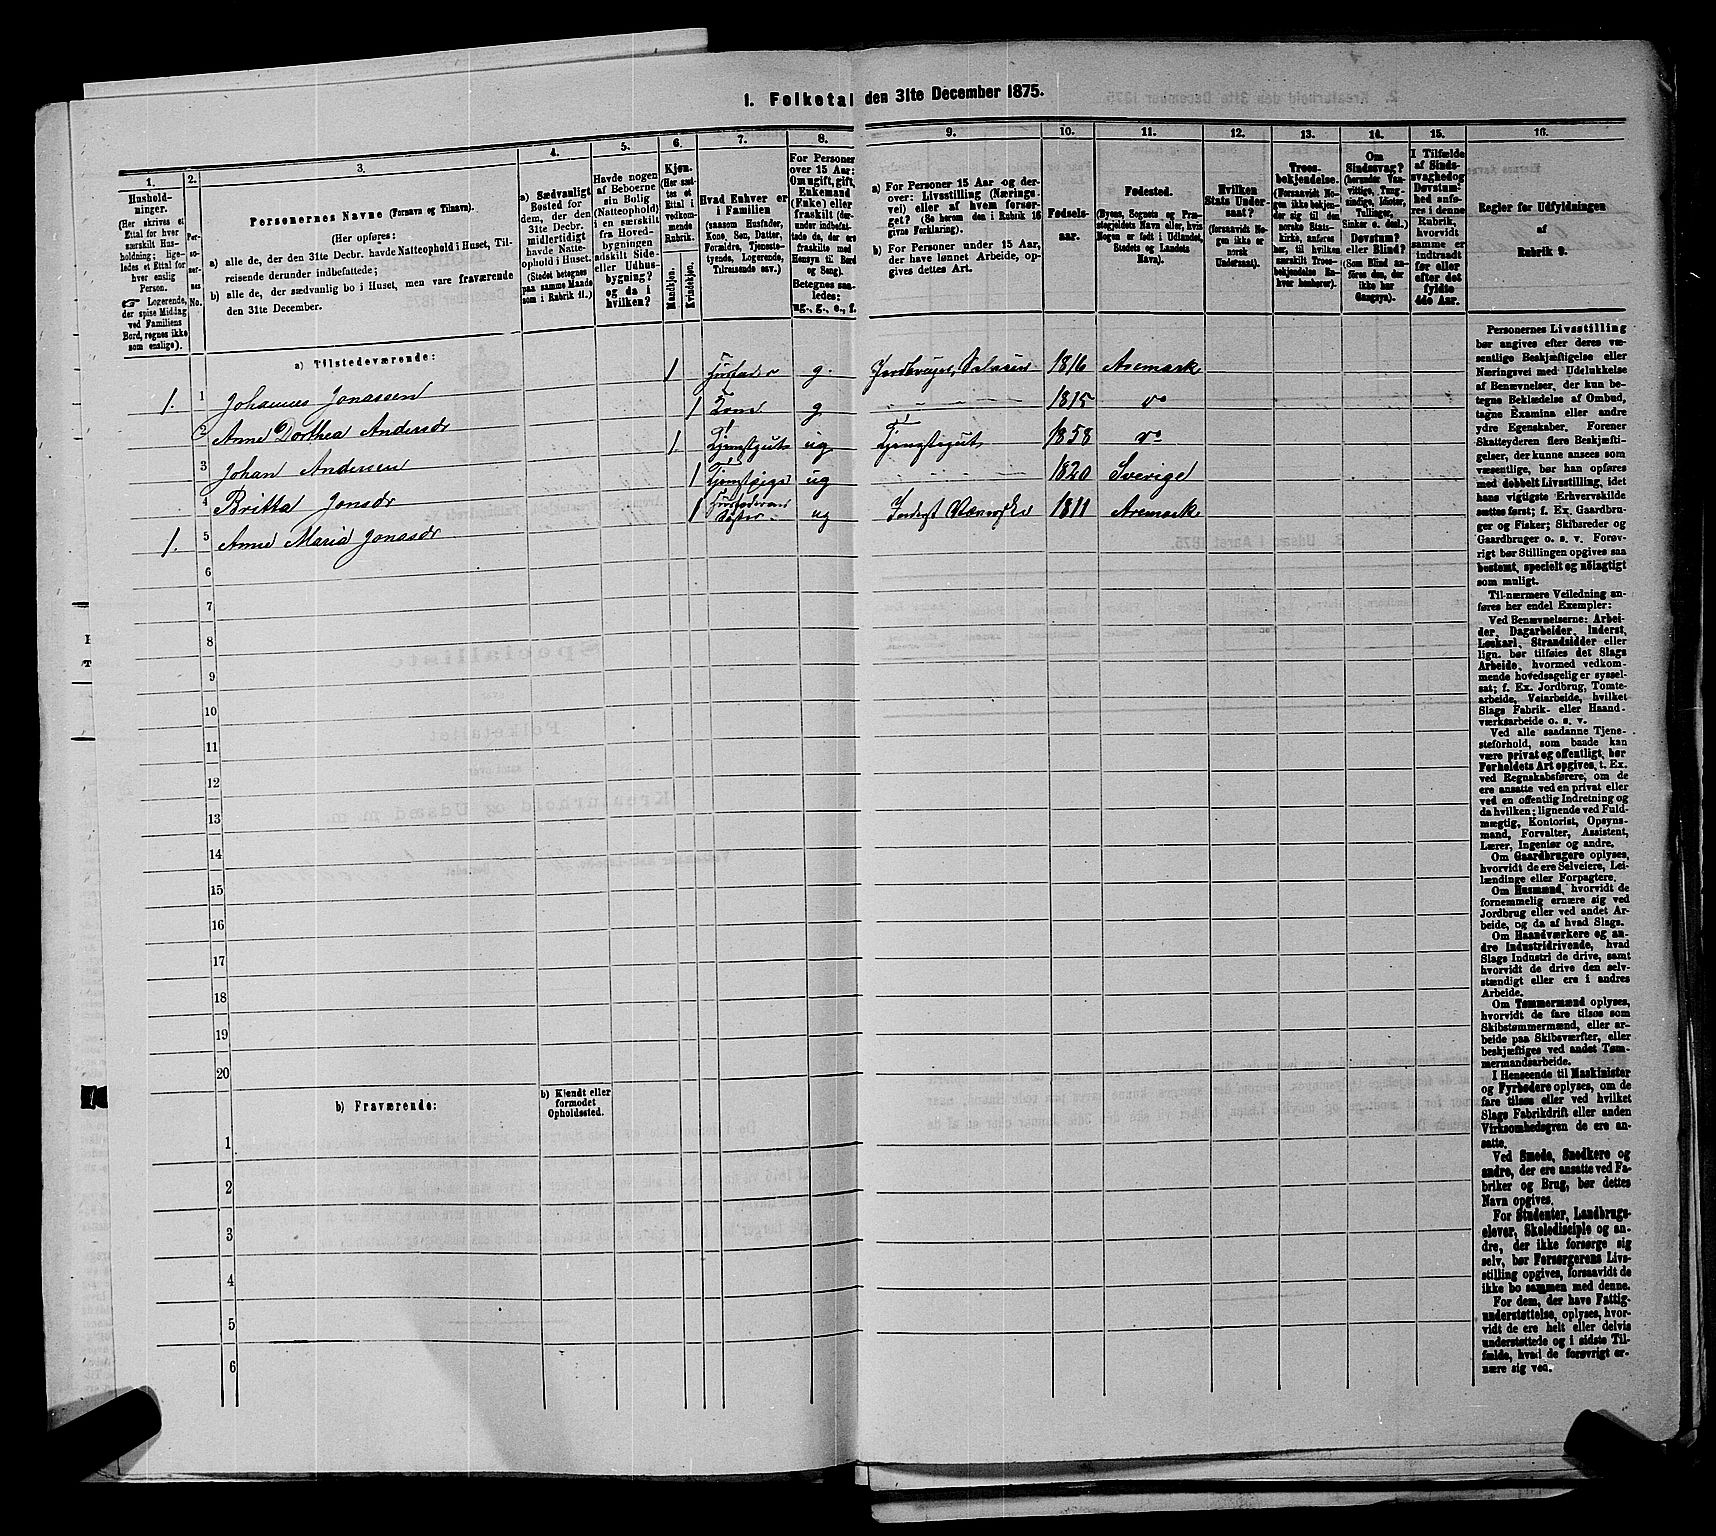 1. Folketal den 31te December 1875.
1. 2. 3. 4. 5. 6. 7. 8. 9. 10. 11. 12. 13. 14. 15. 16.
Hushold-
ninger.
(Her skrives et
Ettal for hver
særskilt Hus-
holdning; lige-
ledes et Ettal for
hver enslig
Person.
☞ Logerende,
der spise Middag
ved Familiens
Bord, regnes ikke
som enslige).
Per-
so-
ner-
nes
No.
Personernes Navne (Fornavn og Tilnavn).
(Her opføres:
a) alle de, der den 31te Decbr. havde Natteophold i Huset, Til-
reisende derunder indbefattede;
b) alle de, der sædvanlig bo i Huset, men vare fraværende
den 31te December.
a) Sædvanligt
Bosted for
dem, der den
31te Decbr.
midlertidigt
havde Natte-
ophold i Huset.
(Stedet betegnes
paa samme Maade
som i Rubrik 11.)
Havde nogen
af Beboerne
sin Bolig
(Natteophold)
i en særskilt
fra Hoved-
bygningen
adskilt Side-
eller Udhus-
bygning?
og da i
hvilken?
Kjøn.
(Her sæt-
tes et
Ettal i
vedkom-
mende
Rubrik.
Mandkjøn.
Kvindekjøn.
Hvad Enhver er
i Familien
(saasom Husfader,
Kone, Søn, Datter,
Forældre, Tjeneste-
tyende, Logerende,
Tilreisende osv.)
For Personer
over 15 Aar:
Om ugift, gift,
Enkemand
(Enke) eller
fraskilt (der-
under indbefat-
tede de, der ere
fraskilte med
Hensyn til Bord
og Seng).
Betegnes saa-
ledes:
ug., g., e., f.
a) For Personer 15 Aar og der-
over: Livsstilling (Nærings-
vei) eller af hvem forsør-
get? (Se herom den i Rubrik 16
givne Forklaring).
b) For Personer under 15 Aar,
der have lønnet Arbeide, op-
gives dettes Art.
Fødsels-
aar.
Fødested.
(Byens, Sognets og Præ-
stegjeldets Navn eller, hvis
Nogen er født i Udlandet,
Stedets og Landets
Navn).
Hvilken
Stats Under-
saat?
(forsaavidt No-
gen ikke er
norsk
Undersaat).
Troes-
bekjendelse.
(Forsaavidt No-
gen ikke bekjen-
der sig til den
norske Stats-
kirke, anføres
her, til hvilken
særskilt Troes-
bekjendelse En-
hver henhører).
Om
Sindssvag?
(herunder Van-
vittige, Tung-
sindige, Idioter,
Tullinger,
Sinker o. desl.)
Døvstum?
eller Blind?
(Som Blind an-
føres den, der
ikke har
Gangsyn).
I Tilfælde
af Sinds-
svaghed og
Døvstum-
hed anfø-
res i denne
Rubrik,
hvorvidt
samme er
indtraadt
før eller
efter det
fyldte
4de Aar.
Regler for Udfyldningen
af
Rubrik 9.
a) Tilstedeværende:
1. 1 Johannes Jonassen 1 Husfader g. Jordbruger, Selveier 1816 Aremark
2 Anne Dorthea Andersdr 1 Kone g 1815 do
3 Johan Andersen 1 Tjenstgut ug Tjenstegut 1858 do
4 Britta Jonsdr 1 Tjenstpige ug 1820 Sverige
1. 5 Anne Maria Jonasdr 1 Husfaderens Søster ug Inderst 1811 Aremark
6
7
8
9
10
11
12
13
14
15
16
17
18
19
20
b) Fraværende:
b) Kjendt eller
formodet
Opholdssted.
1
2
3
4
5
6
Personernes Livsstilling
bør angives efter deres væ-
sentlige Beskjæftigelse eller
Næringsvei med Udelukkelse
af Benævnelser, der kun be-
tegne Bekladelse af Ombud,
tagne Examina eller andre
ydre Egenskaber. Forener
Skatteyderen flere Beskjæfti-
gelser, der kunne ansees som
væsentlige, bør han opføres
med dobbelt Livsstilling, idet
hans vigtigste Erhvervskilde
sættes først; f. Ex. Gaardbru-
ger og Fisker; Skibsreder og
Gaardbruger o. s. v. Forøv-
rigt bør Stillingen opgives saa
bestemt, specielt og nøiagtigt
som muligt.
Til nærmere Veiledning an-
føres her endel Exempler:
Ved Benævnelserne: Arbei-
der, Dagarbeider, Inderst,
Løskarl, Strandsidder eller
lign. bør tilføies det Slags
Arbeide, hvormed vedkom-
mende hovedsagelig er syssel-
sat; f. Ex. Jordbrug, Tomte-
arbeide, Veiarbeide, hvilket
Slags Fabrik- eller Haand-
værksarbeide o. s. v.
Ved alle saadanne Tjene-
steforhold, som baade kan
være privat og offentligt, bør
Forholdets Art opgives, f. Ex.
ved Regnskabsførere, om de
ere ansatte ved en privat eller
ved en offentlig Indretning og
da hvilken; lignende ved Fuld-
mægtig, Kontorist, Opsyns-
mand, Forvalter, Assistent,
Lærer, Ingeniør og andre.
Om Gaardbrugere oplyses,
hvorvidt de ere Selveiere, Lei-
lændinge eller Forpagtere.
Om Husmænd, hvorvidt de
fornemmelig ernære sig ved
Jordbrug eller ved andet Ar-
beide, og da af hvad Slags.
Om Haandværkere og an-
dre Industridrivende, hvad
Slags Industri de drive, samt
hvorvidt de drive den selv-
stændigt eller ere i andres
Arbeide.
Om Tømmermænd oplyses,
hvorvidt de fare tilsøs som
Skibstømmermænd, eller ar-
beide paa Skibsværfter, eller
beskjæftiges ved andet Tøm-
mermandsarbeide.
I Henseende til Maskinister
og Fyrbødere oplyses, om de
fare tilsøs eller ved hvilket
Slags Fabrikdrift eller anden
Virksomhedsgren de ere an-
satte.
Ved Smede, Snedkere og
andre, der ere ansatte ved Fa-
briker og Brug, bør dettes
Navn opgives.
For Studenter, Landbrugs-
elever, Skoledisciple og an-
dre, der ikke forsørge sig
selv, bør Forsørgerens Livs-
stilling opgives, forsaavidt de
ikke bo sammen med denne.
For dem, der have Fattig-
understøttelse, oplyses, hvor-
vidt de ere helt eller delvis
understøttede og i sidste Til-
fælde, hvad de forøvrigt er-
nære sig ved.